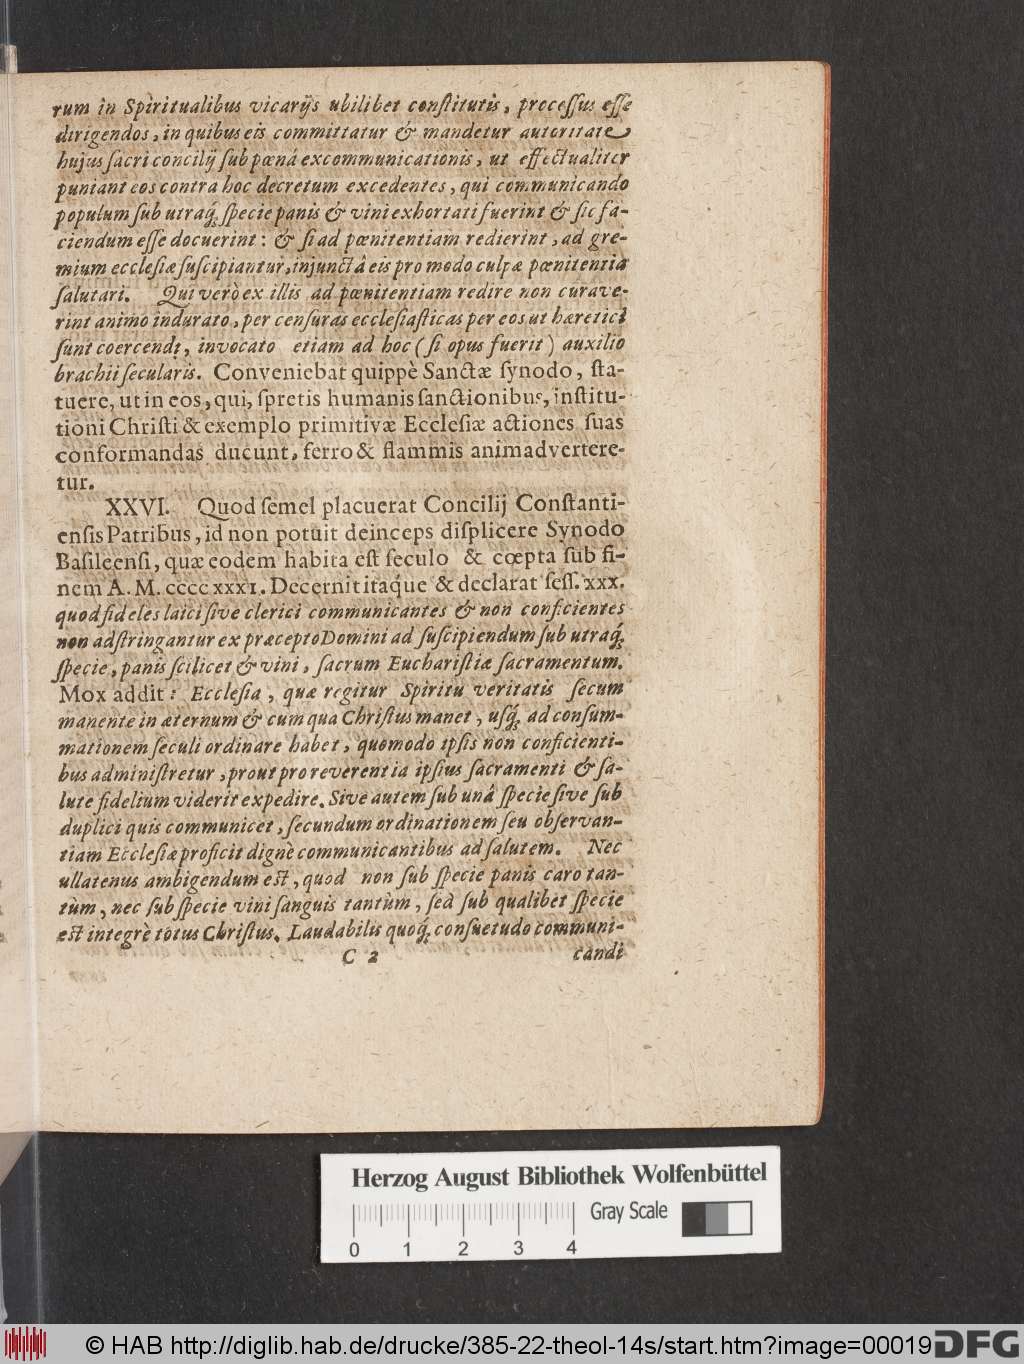 rum in Spiritualibus vicarijs ubilibet conſtitutis, proceſſus eſſe
dirigendos, in quibus eis committatur & mandetur autoritate
hujus ſacri concilij ſub pœnâ excommunicationis, ut effectualiter
puniant eos contra hoc decretum excedentes, qui communicando
populum ſub utraq́; ſpecie panis & vini exhortati fuerint & ſic fa-
ciendum eſſe docuerint: & ſi ad pœnitentiam redierint, ad gre-
mium eccleſiæ ſuſcipiantur, injunctâ eis pro modo culpæ pœnitentia
ſalutari. Qui verò ex illis ad pœnitentiam redire non curave-
rint animo indurato, per cenſuras eccleſiaſticas per eos ut hæretici
ſunt coercendi, invocato etiam ad hoc (ſi opus fuerit) auxilio
brachii ſecularis. Conveniebat quippè Sanctæ ſynodo, ſta-
tuere, ut in eos, qui, ſpretis humanis ſanctionibus, inſtitu-
tioni Chriſti & exemplo primitivæ Eccleſiæ actiones ſuas
conformandas ducunt, ferro & flammis animadvertere-
tur.
XXVI. Quod ſemel placuerat Concilij Conſtanti-
enſis Patribus, id non potuit deinceps diſplicere Synodo
Baſileenſi, quæ eodem habita eſt ſeculo & cœpta ſub fi-
nem A. M. cccc xxxi. Decernit itaque & declarat ſeſſ. xxx.
quod fideles laici ſive clerici communicantes & non conficientes
non adſtringantur ex præcepto Domini ad ſuſcipiendum ſub utraq́;
ſpecie, panis ſcilicet & vini, ſacrum Euchariſtiæ ſacramentum.
Mox addit: Eccleſia, quæ regitur Spiritu veritatis ſecum
manente in æternum & cum qua Chriſtus manet, uſq́; ad conſum-
mationem ſeculi ordinare habet, quomodo ipſis non conficienti-
bus adminiſtretur, prout pro reverentia ipſius ſacramenti & ſa-
lute fidelium viderit expedire. Sive autem ſub unâ ſpecie ſive ſub
duplici quis communicet, ſecundum ordinationem ſeu obſervan-
tiam Eccleſiæ proficit dignè communicantibus ad ſalutem. Nec
ullatenus ambigendum eſt, quod non ſub ſpecie panis caro tan-
tùm, nec ſub ſpecie vini ſanguis tantùm, ſed ſub qualibet ſpecie
eſt integrè totus Chriſtus. Laudabilis quoq́; conſuetudo communi-
C 2 candi
Herzog August Bibliothek Wolfenbüttel
Gray Scale
0 1 2 3 4
© HAB http://diglib.hab.de/drucke/385-22-theol-14s/start.htm?image=00019
DFG